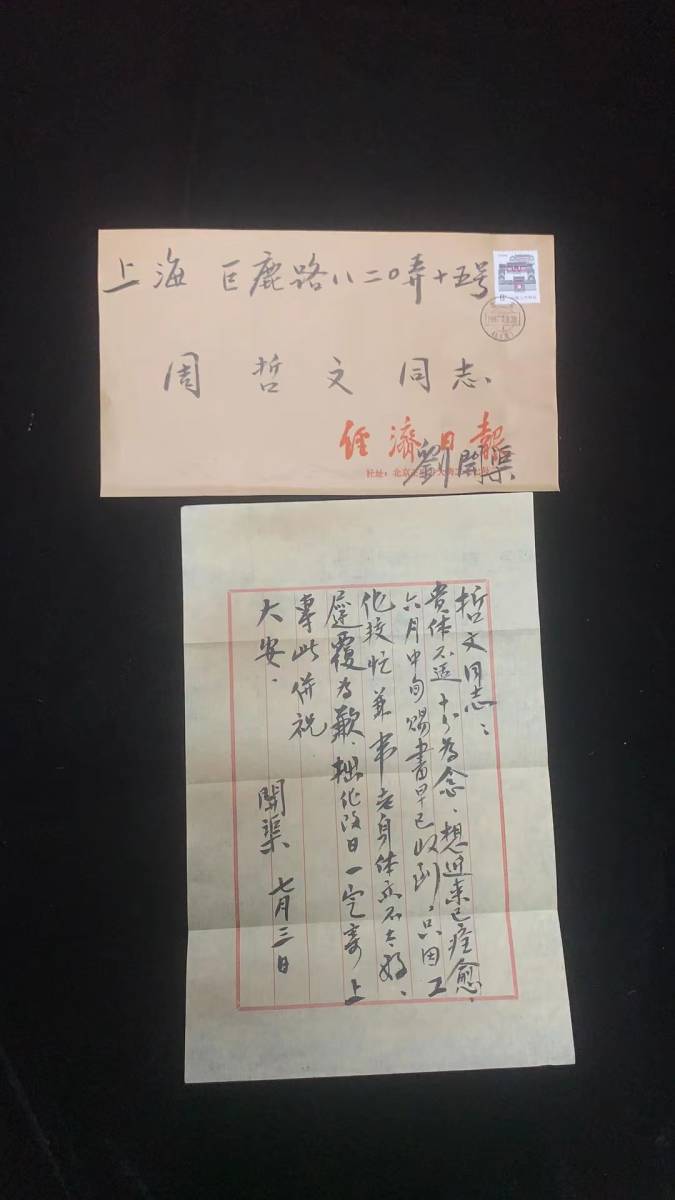 上海 巨鹿路八二〇弄十五号
周哲文同志
经济日报
社址：北京
劉開渠
哲文同志：
贵体不适十分为念、想近来已痊愈、
六月中旬赐書早已收到，只因工
作较忙兼 老身体亦不太好、
遲覆为歉、拙作改日一定寄上
專此併祝
大安.
開渠 七月三日